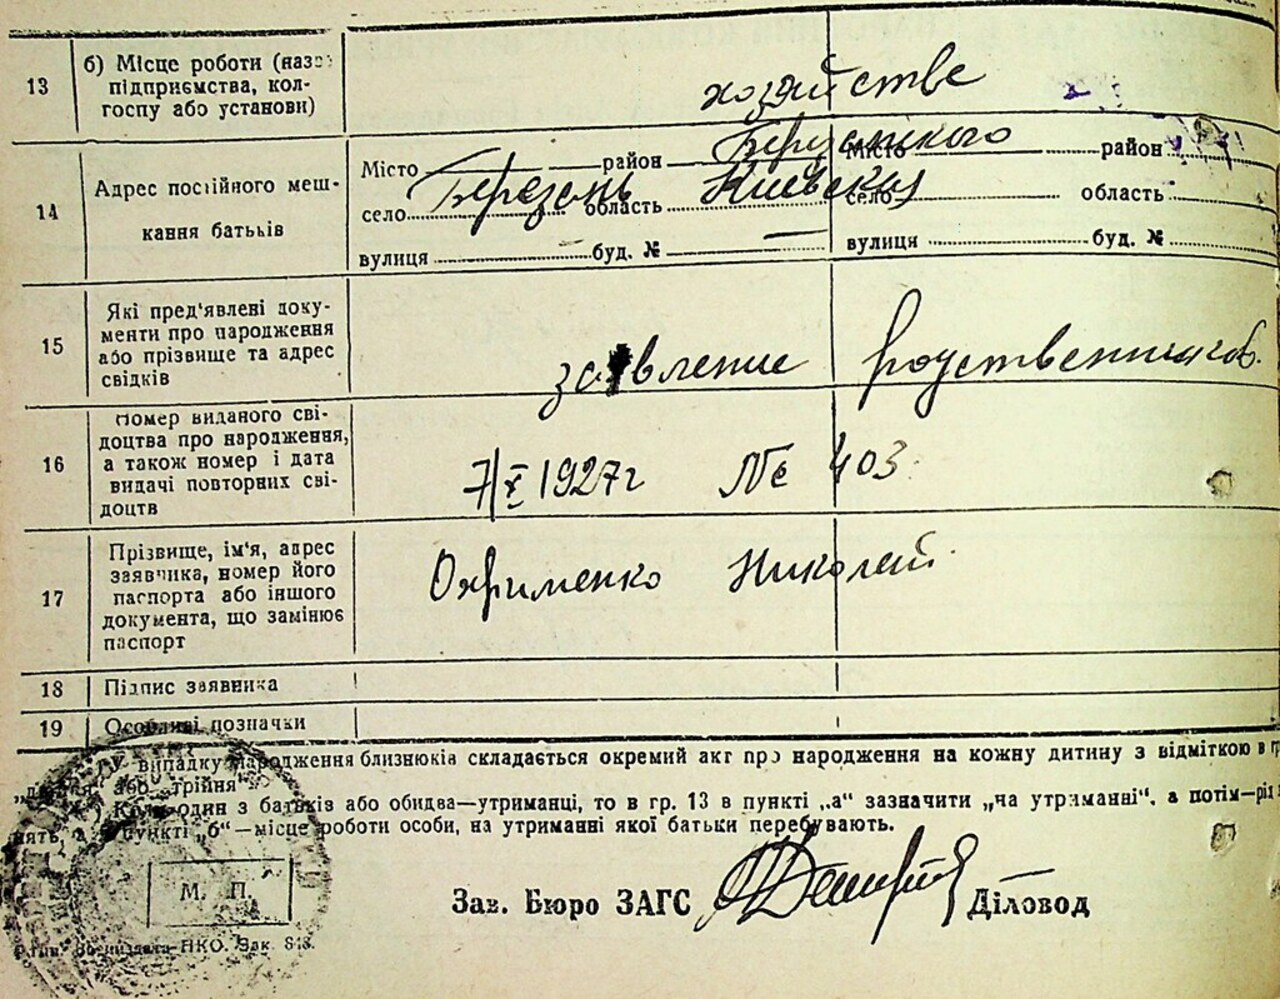 13 б) Місце роботи (назва
підприємства, кол-
госпу або установи)
хозяйстве
14 Адрес постійного меш-
кання батьків
Місто район Місто район
село Березань область Киевская село область
вулиця буд. № — вулиця буд. №
15 Які пред'явлені доку-
менти про народження
або прізвище та адрес
свідків
заявление родственников.
16 Номер виданого сві-
доцтва про народження,
а також номер і дата
видачі повторних сві-
доцтв
7/X 1927г № 403.
17 Прізвище, ім'я, адрес
заявника, номер його
паспорта або іншого
документа, що замінює
паспорт
Охрименко Николай.
18 Підпис заявника
19 Особливі позначки
У випадку народження близнюків складається окремий акт про народження на кожну дитину з відміткою в гр
або „трійня“.
Коли один з батьків або обидва—утриманці, то в гр. 13 в пункті „а“ зазначити „на утриманні“, а потім—
пункті „б“—місце роботи особи, на утриманні якої батьки перебувають.
М. П.
Зав. Бюро ЗАГС Діловод
НКО. Зак. 848.